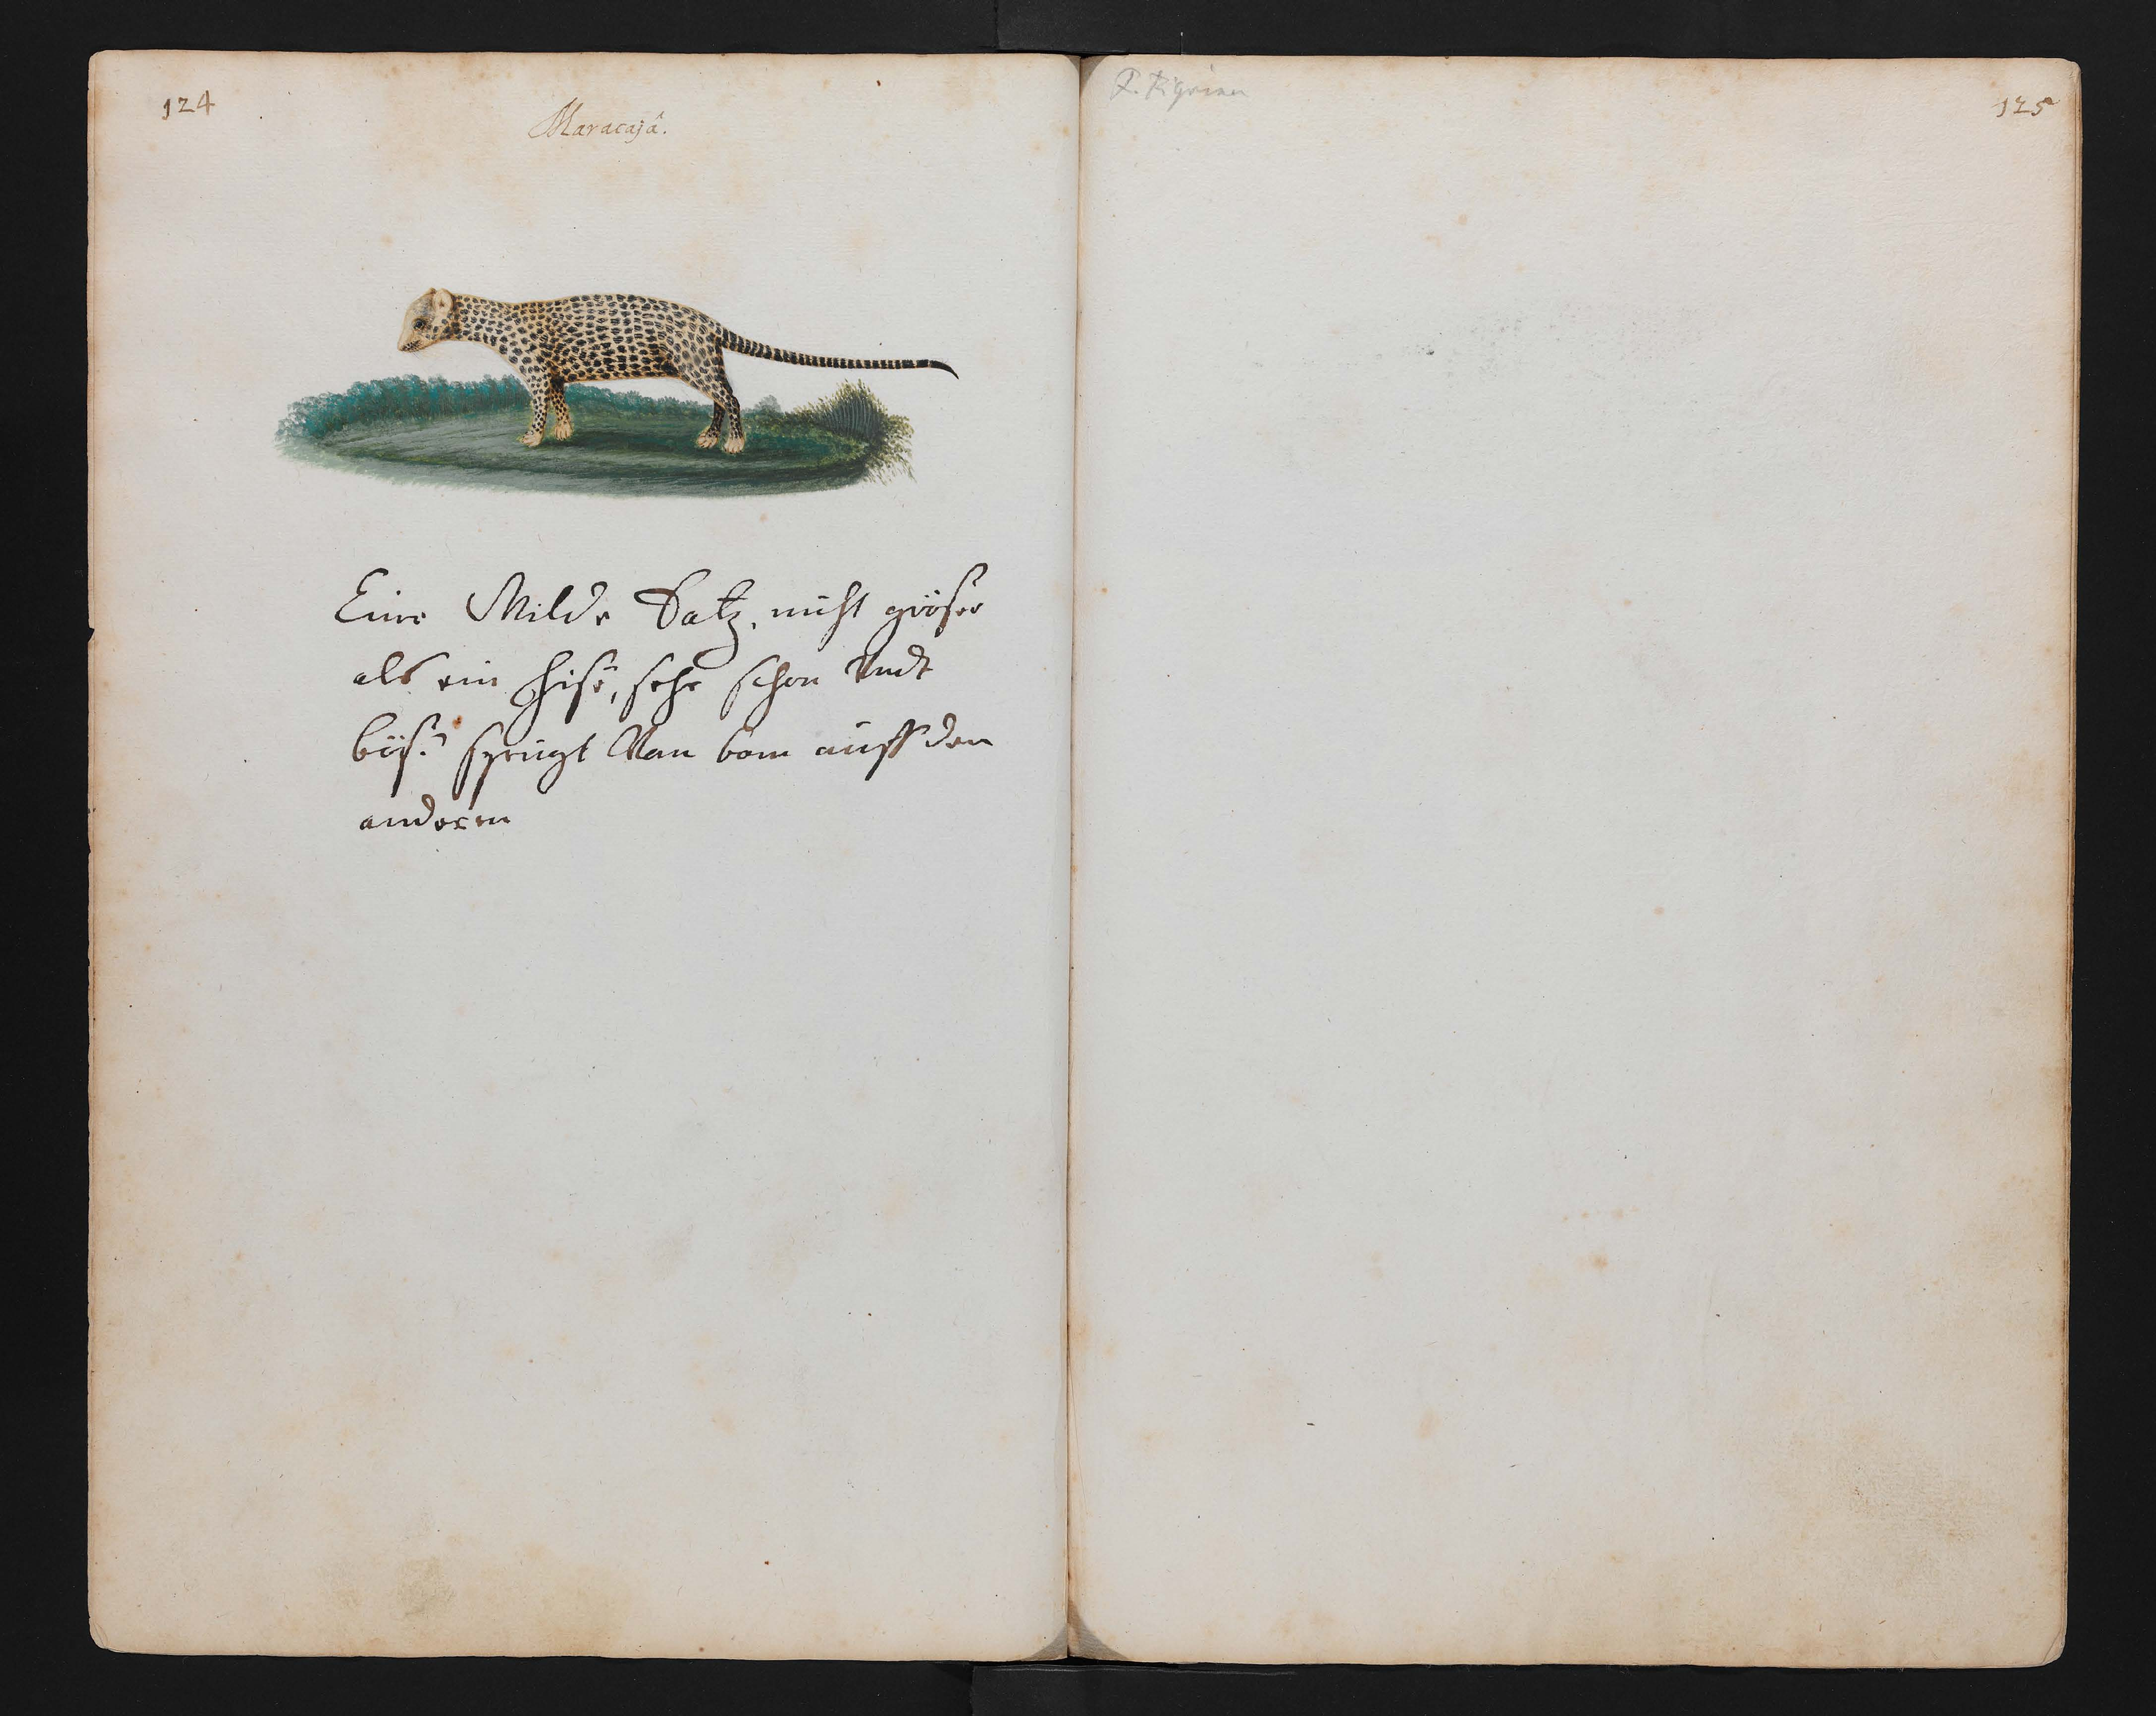 124
Maracajâ.
Eine Wilde Katz, nicht gröser
als ein hisr, sehr schon Undt
bös. springt Van bom auff den
anderen
125